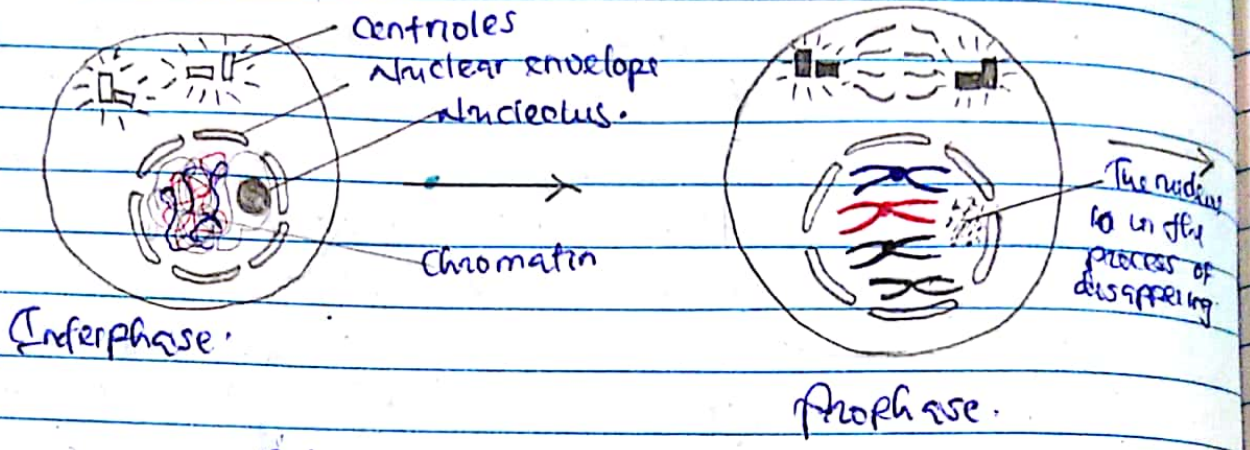 Centrioles
Nuclear envelope
Nucleolus.
Chromatin
Interphase.
The nucleus
is in the
process of
disappering.
Prophase.